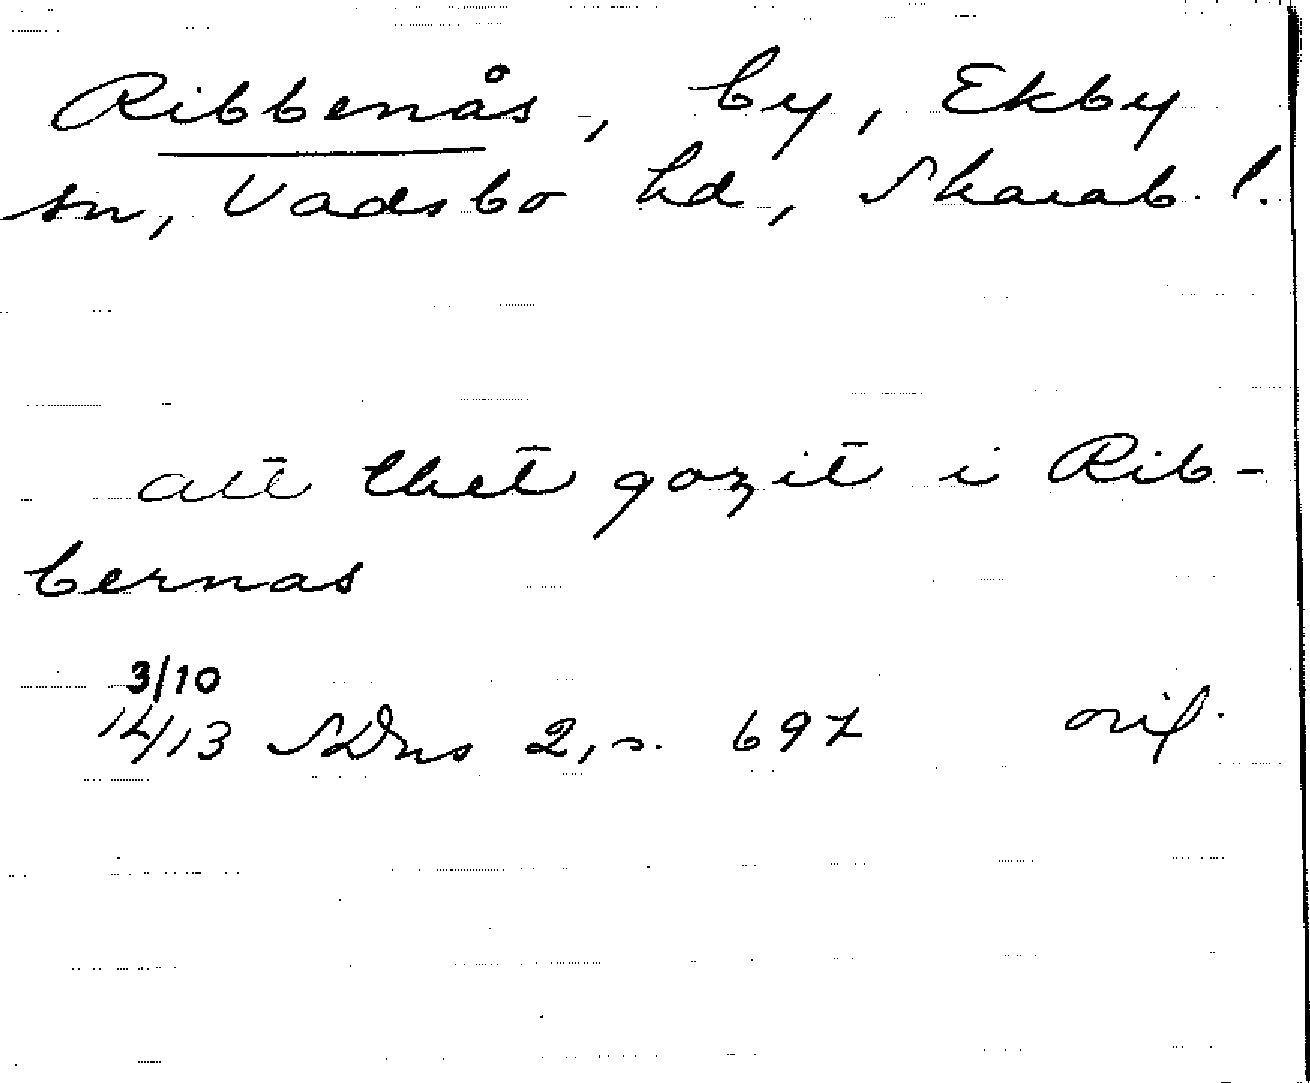 Ribbenås, by, Ekby
sn, Vadsbo hd, Skarab. l.
att thet gozit i Rib-
bernas
3/10
14/13 SDns 2, s. 697 orig.